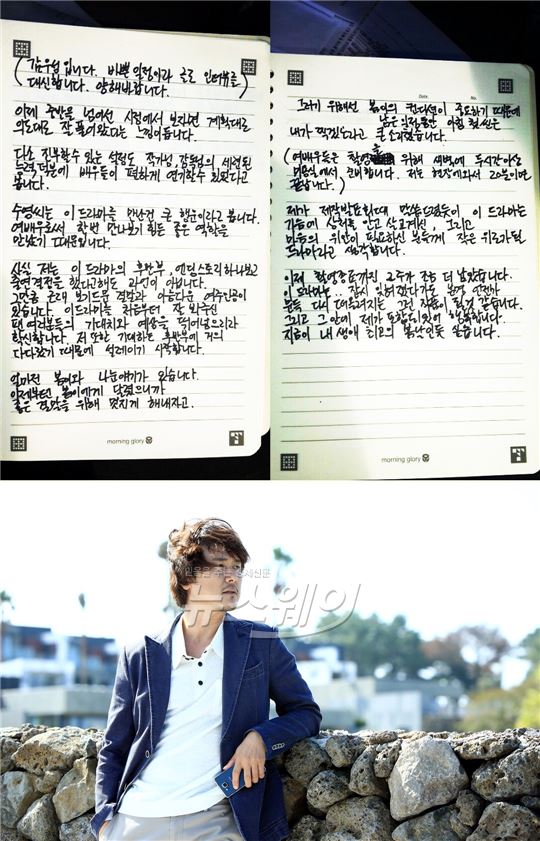 ( 감우성입니다. 바쁜 일정이라 글로 인터뷰를
대신합니다. 양해바랍니다. )
이제 중반을 넘어선 시점에서 보자면 계획대로
의도대로 잘 풀어왔다는 느낌이듭니다.
다소 진부할수 있는 설정도 작가님, 감독님의 세련된
능력덕분에 배우들이 편하게 연기할수 있었다고
봅니다.
수영씨는 이 드라마를 만난건 큰 행운이라고 봅니다.
여배우로써 한번 만나보기 힘든 좋은 역할을
만났기 때문입니다.
사실 저는 이 드라마의 후반부, 엔딩스토리 하나보고
출연결정을 했다고해도 과언이 아닙니다.
그만큼 근래 보기드문 결말과 아름다운 여주인공이
있습니다. 이드라마를 처음부터 잘 봐주신
팬 여러분들의 기대치와 예상을 뛰어넘으리라
확신합니다. 저 또한 기대하는 후반부에 거의
다다랐기 때문에 설레이기 시작합니다.
얼마전 봄이와 나눈얘기가 있습니다.
이제부터는 봄이에게 달렸으니까
좋은 결말을 위해 멋지게 해내자고.
morning glory
Date. No.
그러기 위해선 봄이의 컨디션이 중요하기 때문에
남은 일정동안 아침 첫 씬은
내가 찍겠노라고 큰소리쳤습니다.
( 여배우들은 촬영을 위해 새벽에 두시간이상
미용실에서 준비합니다. 저는 현장에와서 20분이면
끝납니다. )
제가 제작발표회때 말씀드렸듯이 이 드라마는
가슴에 상처를 안고 살고계신, 그리고
마음의 위안이 필요하신 분들께 작은 위로가될
드라마라고 생각합니다.
이제 촬영종료까진 2주가 조금 더 남았습니다.
이 드라마는 잠시 잊혀졌다가도 봄에 언젠가
문득 다시 떠올려지는 그런 작품이 될것 같습니다.
그리고 그 안에 제가 포함되있어 행복합니다.
지금이 내 생애 최고의 봄날인듯 싶습니다.
morning glory
사람을 경제신문
뉴스웨이